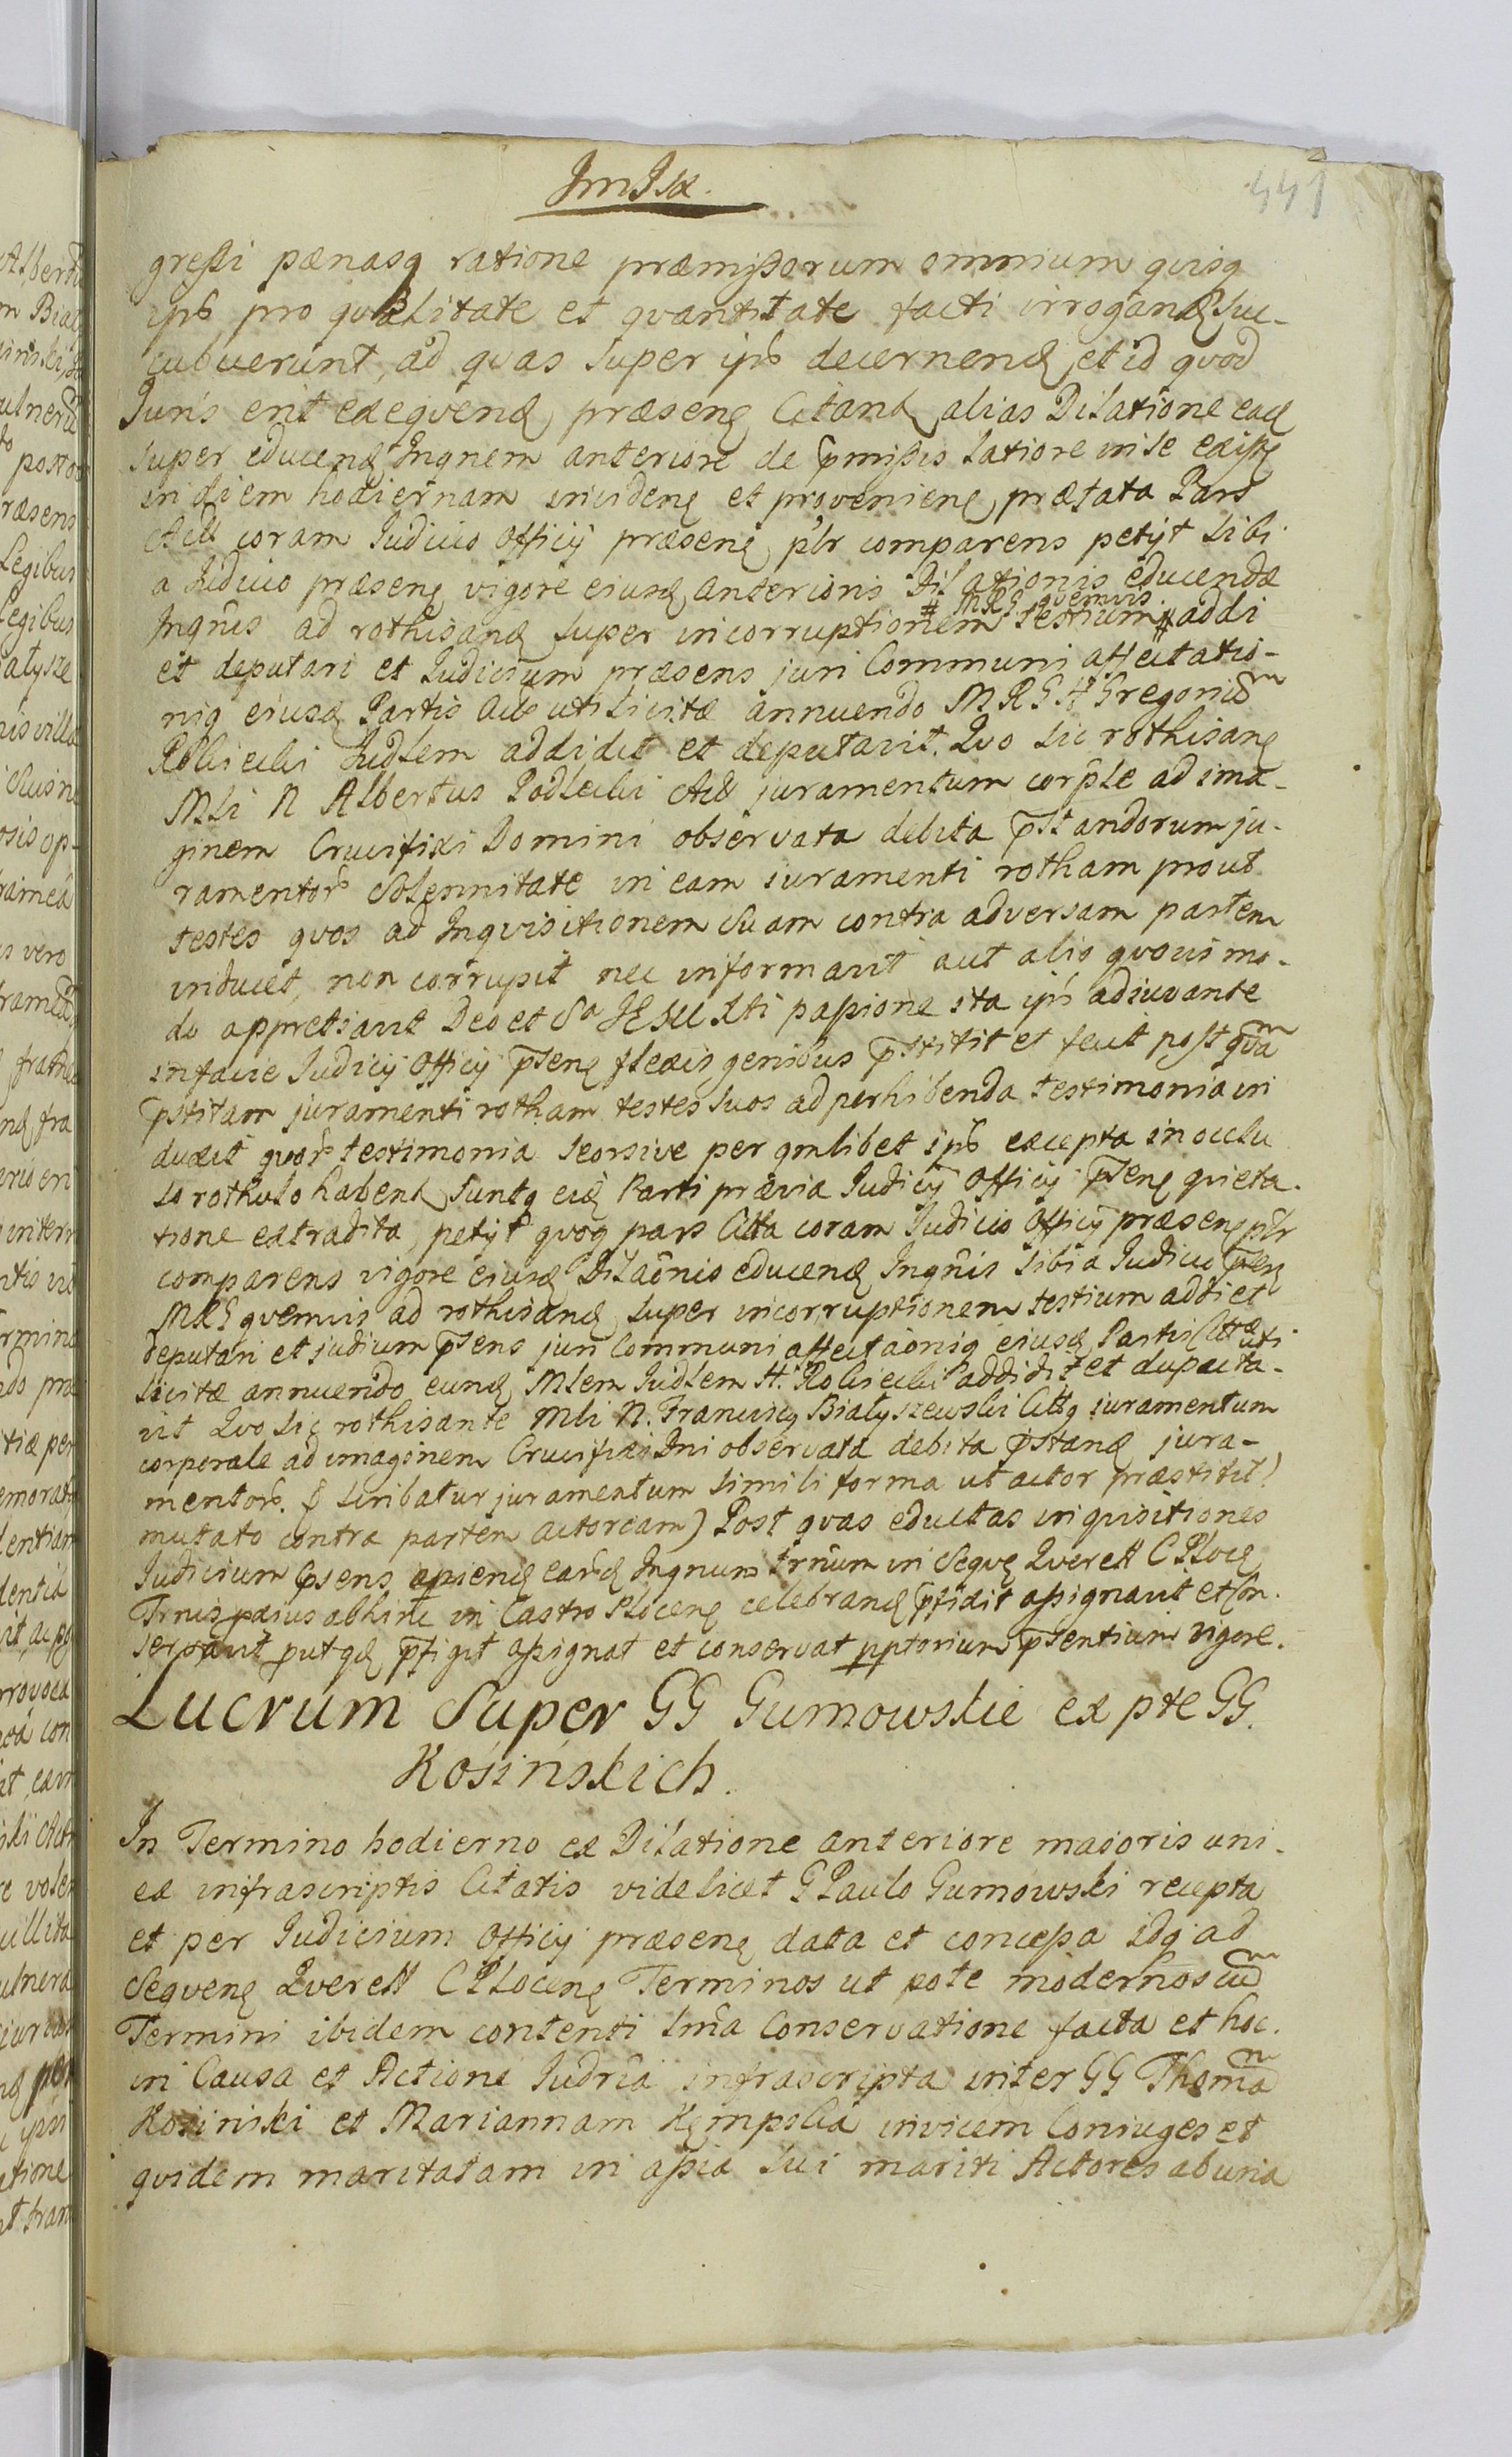 JmJsæ.
441
gressi pænasq ratione præmissorum omnium quisq
ips pro qualitate et quantitate facti irrogand suc-
cubuerunt, ad quas super ips decernend et id quod
Juris erit exequend, præsens Citand alias Dilatione ead
super educend Inqnem anteriore de pmissis latiore in se
in diem hodiernam inciden et provenien, præfata Pars
Act coram Judicio Officij præsen plr comparens petijt sibi
a Judicio præsen vigore eiusd anterioris Dilationis educendæ
# MRG quemvis
Inqnis ad rothisand super incorruptionem testium # addi
et deputari et Judicium præsens juri Communi affectatio-
niq eiusd Partis Act uti licitæ annuendo MRG H Gregoriũ
Robiecki Judlem addidit et deputavit. Quo sic rothisan
Mli N Albertus Podlecki Act juramentum corple ad ima-
ginem Crucifixi Domini observata debita pstandorum ju-
ramentor Solennitate in eam iuramenti rotham prout
testes quos ad Inquisitionem Suam contra adversam partem
inducet, non corrupit nec informavit aut alio quovis mo-
do appretiavit Deo et Sa JESU Xti passione ita ips adiuvante
in facie Judicij Officij psen flexis genibus pstitit et fecit post quã
pstitam juramenti rotham testes suos ad perhibenda testimonia in
duxit quor testimonia seorsive per qmlibet ips excepta in occlu
so rothulo habent suntq eid Parti prævia Judicij Officij psen quieta-
tione extradita, petijt quoq pars Citta coram Judicio Officij præsen plr
comparens vigore eiusd Dilaônis educend Inqnis sibi a Judicio psen
MRG quemvis ad rothisand super incorruptionem testium addi et
deputari et judium psens juri Communi affectaôniq eiusd Partis Cittæ uti
licitæ annuendo eund Mlem Judlem H. Robiecki addidit et duputa-
vit Quo sic rothisante Mli N. Franciscq Białyszewski Cittq juramentum
corporale ad imaginem Crucifixi Dni observata debita pstand jura-
mentor. (scribatur juramentum simili forma ut actor præstitit)
mutato contra partem actoream) Post quas eductas inquisitiones
Judicium psens Inqnum Trnum in Seqve Querell C Ploce
Trnis pcius abhinc in Castro Plocen celebrand pfixit assignavit et con-
servavit putqd pfigit assignat et conservat pptorium psentium vigore.
Lucrum Super GG Gumowskie ex pte GG.
Kosińskich.
In Termino hodierno ex Dilatione anteriore maioris uni
ex infrascriptis Citatis videlicet G Paulo Gumowski recepta
et per Judicium Officij præsen data et concessa idq ad
Sequen Querell C Plocen Terminos ut pote modernos cũ
Termini ibidem contenti Smãa Conservatione facta et hoc
in Causa et Actione Judria infrascripta inter GG Thomã
Kosinski et Mariannam Kempska invicem Coniuges et
quidem maritatam in assia sui mariti Actores ab una